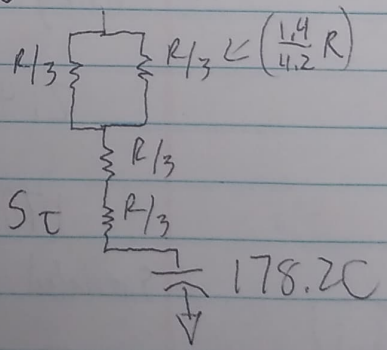 R/3 R/3 ≤ (1.4/4.2 R)
R/3
Sτ R/3
178.2C